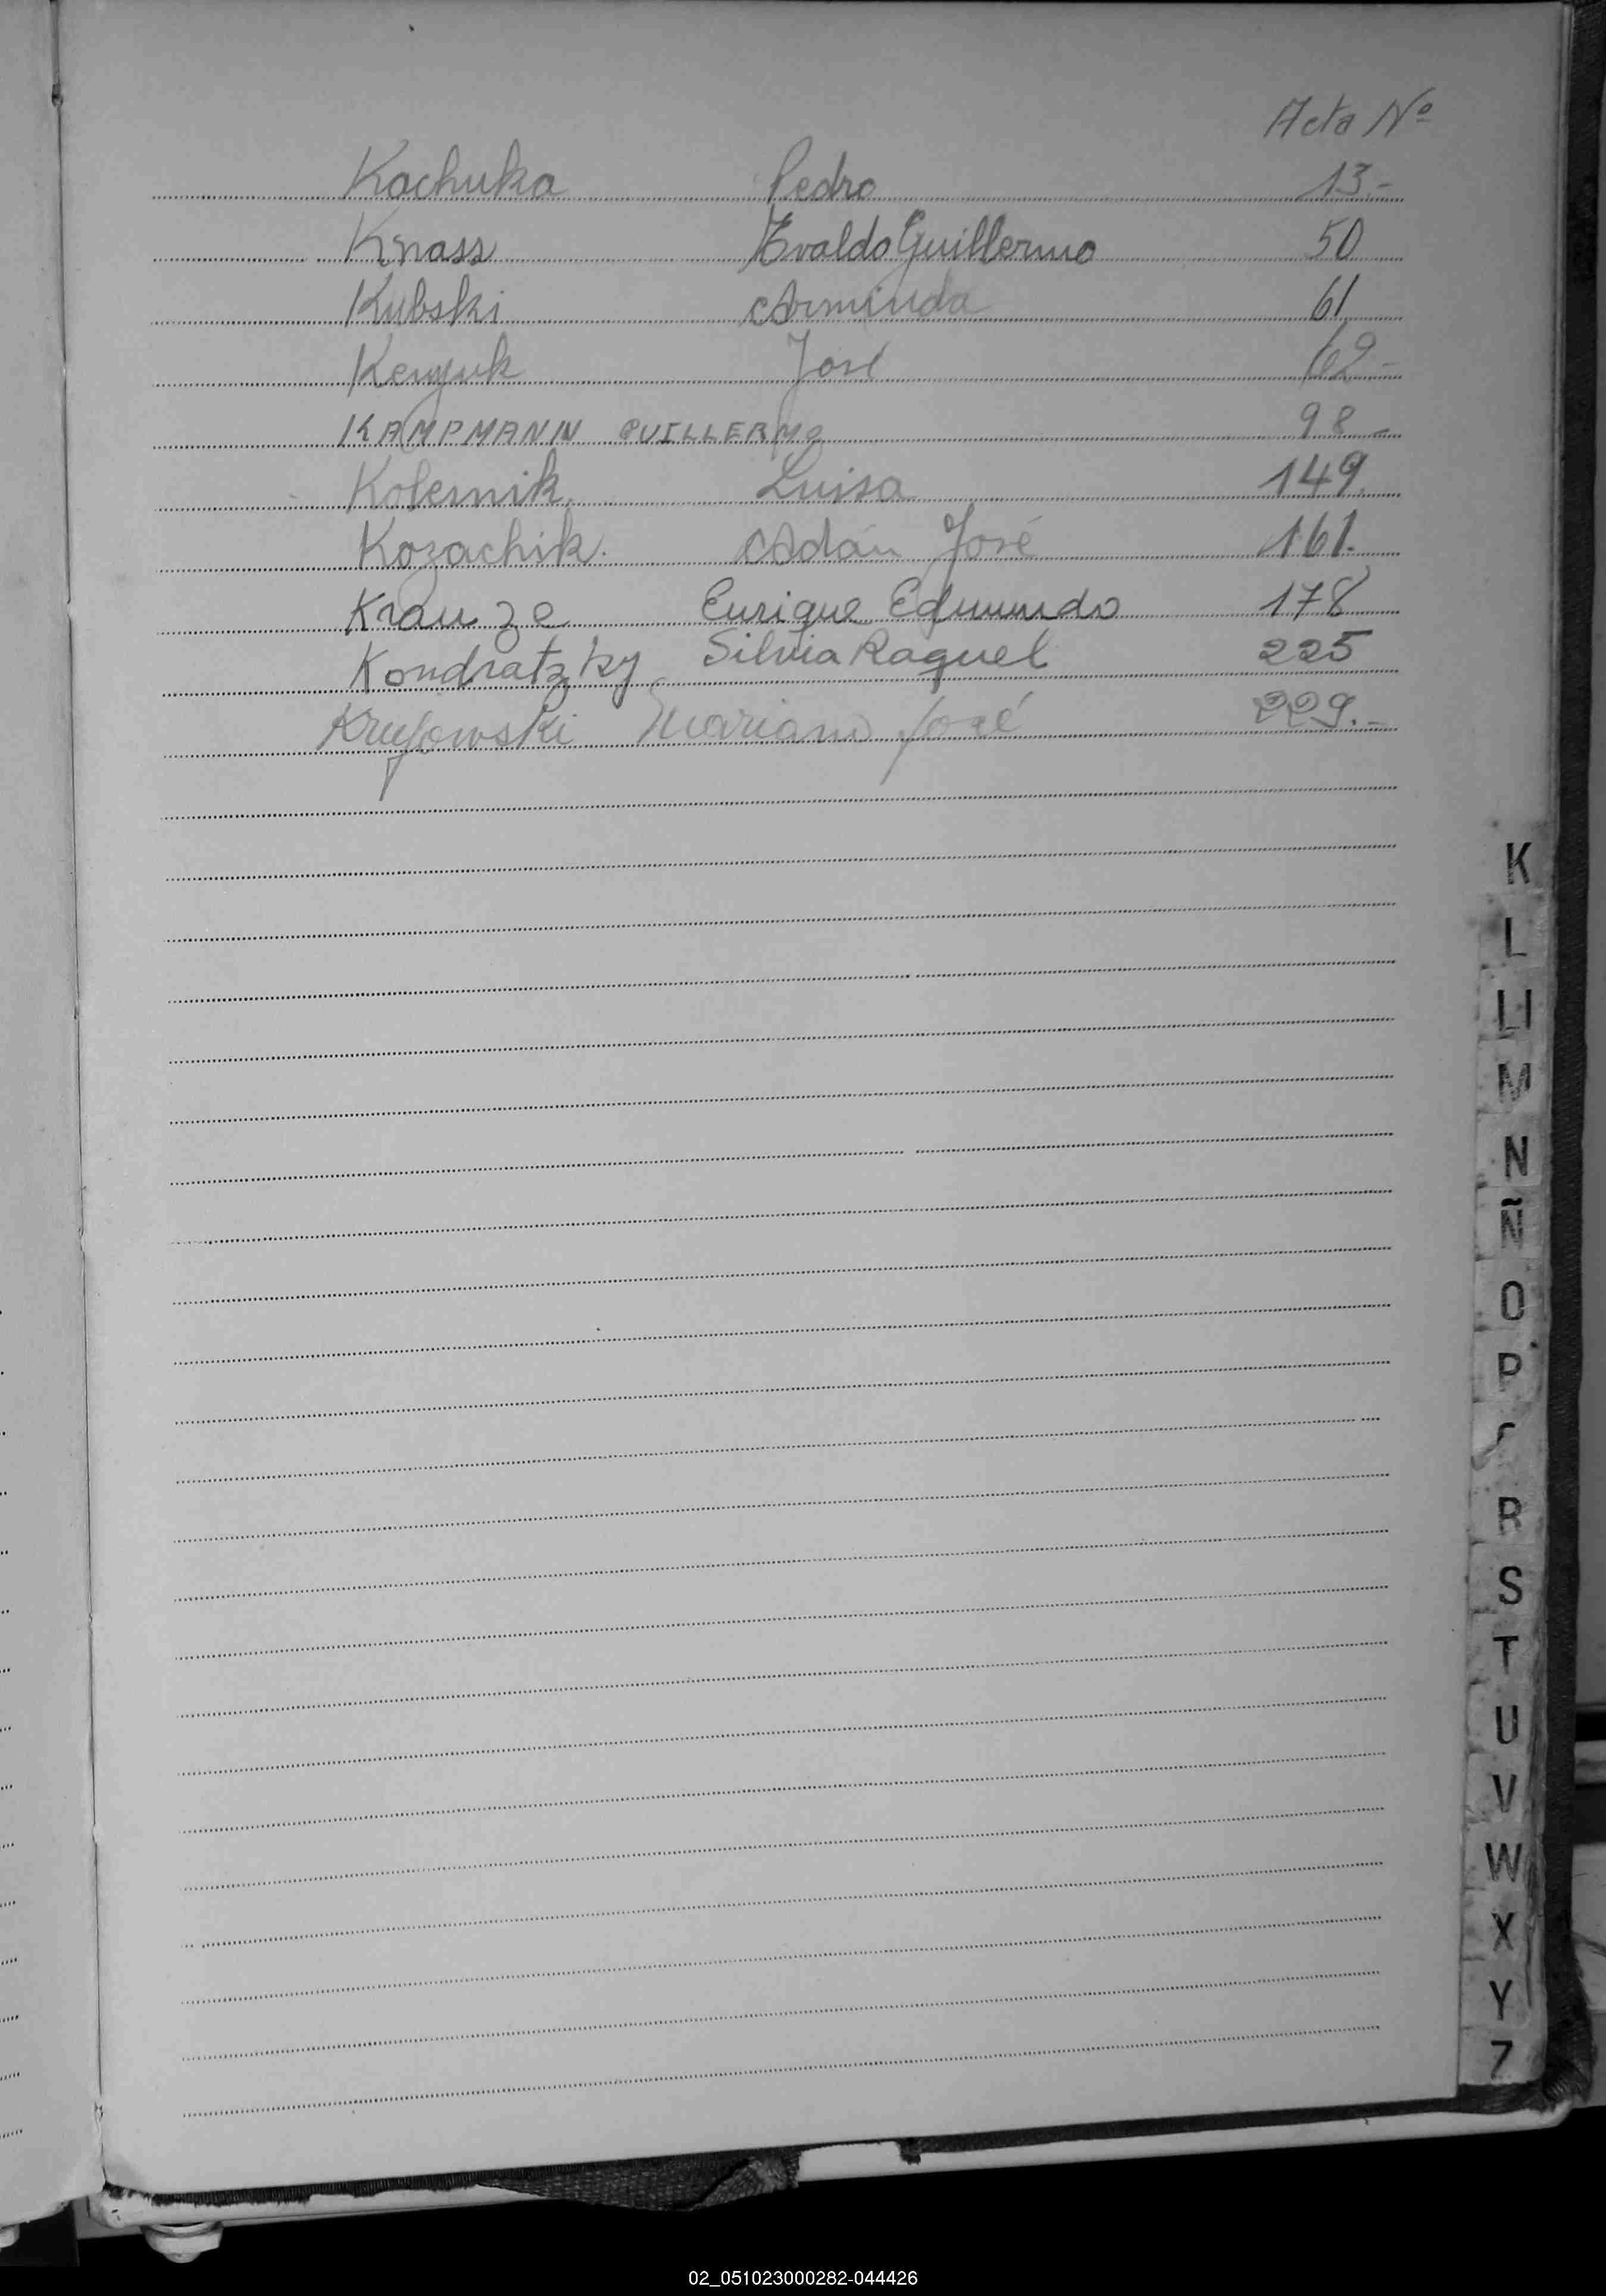 Acta Nº
Kachuka Pedro 13.-
Knass Evaldo Guillermo 50
Kubski Arminda 61
José 62-
KAMPMANN GUILLERMO 98-
Kolesnik. Luisa 149.
Kozachik. Adán José 161.
Krauze Enrique Edmundo 178
Kondratzky Silvia Raquel 225
Kryjowski Mariano José 229.-
K
L
Ll
M
N
Ñ
O
P
R
S
T
U
V
W
X
Y
Z
02_051023000282-044426